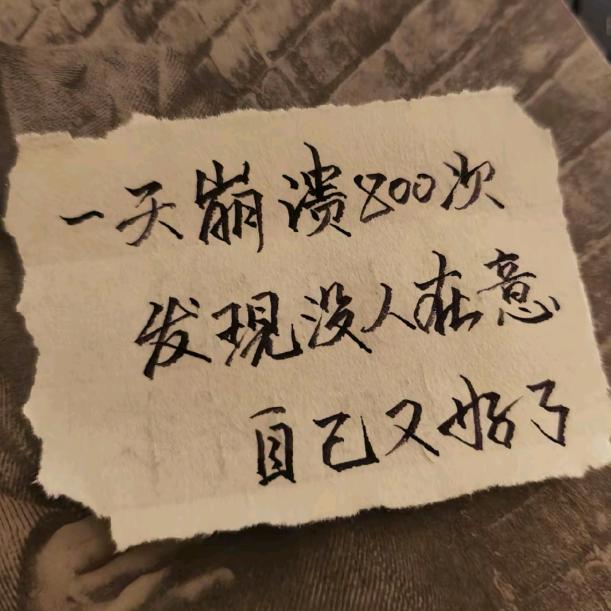 一天崩溃800次
发现没人在意
自己又好了